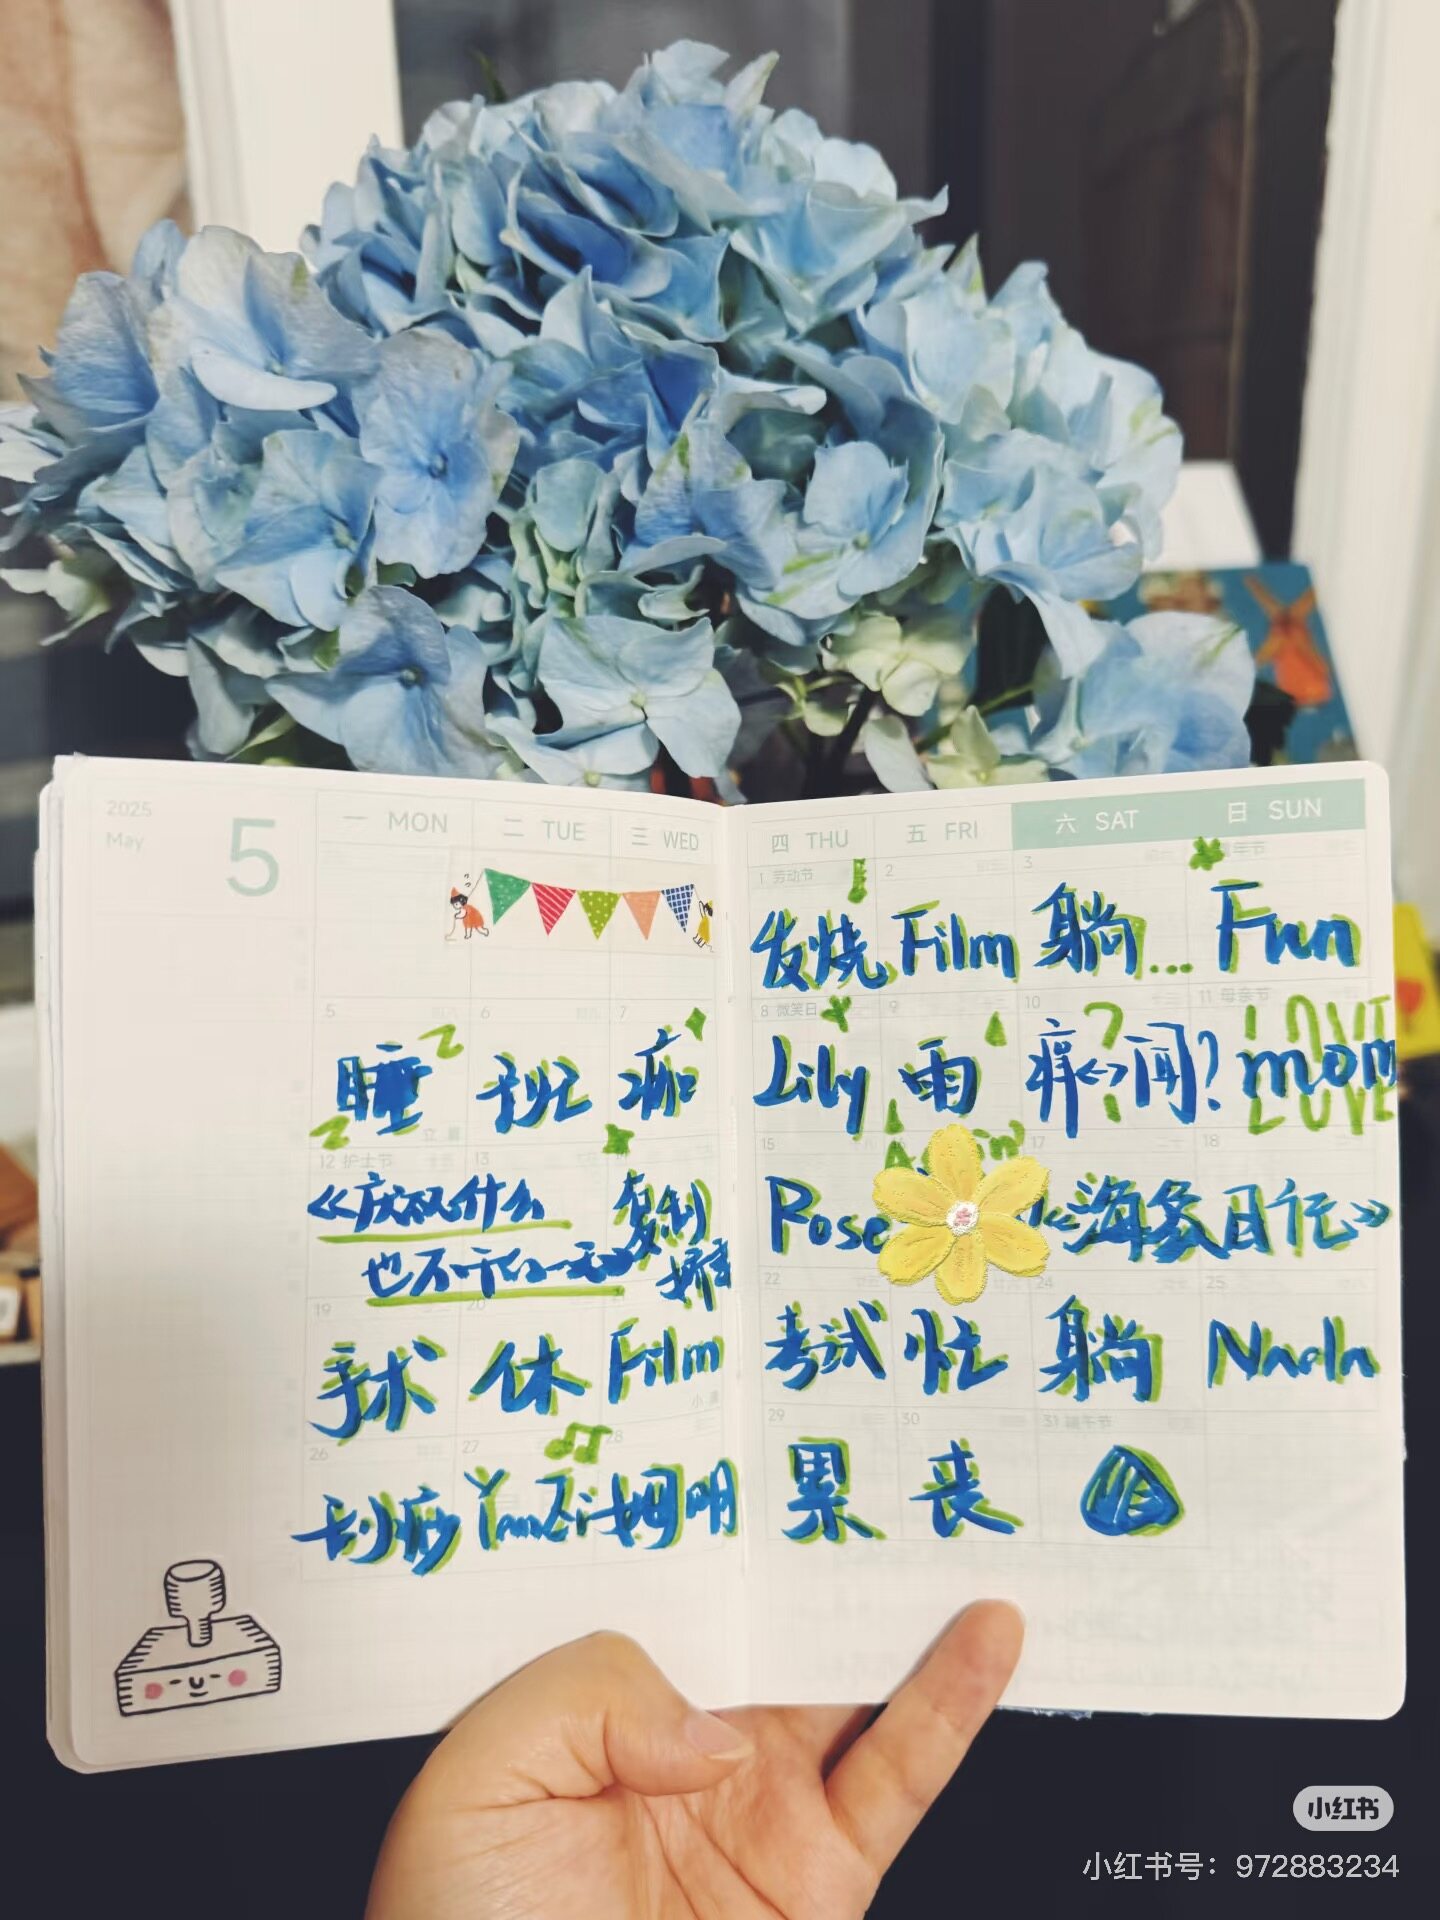 2025
May
5
一 MON 二 TUE 三 WED 四 THU 五 FRI 六 SAT 日 SUN
1 劳动节 2 3
发烧 Film 躺... Fun
5 6 7 8 微笑日 9 10 11 母亲节
Z Z ? LOVE
睡 痂 Lily 雨 痒<->闻? mom
LOVE
12 护士节 13 15 16 17 18
《庆祝什么 复制 Rose 《海象日记》
也不干的一天》
19 20 22 24 25
手术 休 Film 考试 忙 躺 Nada
小满
26 27 28 29 30 31 端午节
刮痧 YanZi 姆明 累 丧
小红书
小红书号：972883234